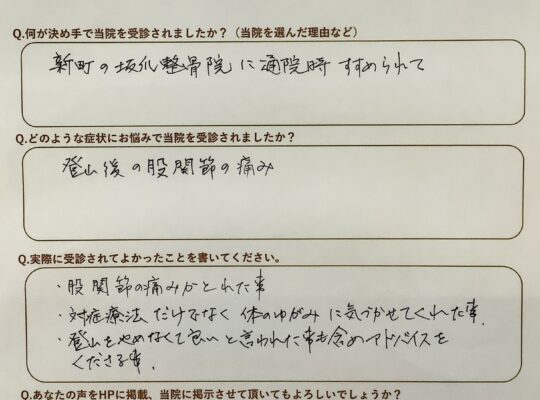 Q.何が決め手で当院を受診されましたか？（当院を選んだ理由など）
新町の坂本整骨院に通院時すすめられて
Q.どのような症状にお悩みで当院を受診されましたか？
登山後の股関節の痛み
Q.実際に受診されてよかったことを書いてください。
・股関節の痛みがとれた事
・対症療法だけでなく体のゆがみに気づかせてくれた事.
・登山をやめなくて良いと言われた事も含めアドバイスを
くださる事.
Q.あなたの声をHPに掲載、当院に掲示させて頂いてもよろしいでしょうか？